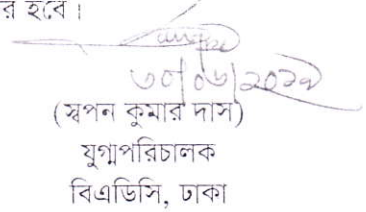 র হবে।
৩০/০৬/২০১৯
(স্বপন কুমার দাস)
যুগ্মপরিচালক
বিএডিসি, ঢাকা